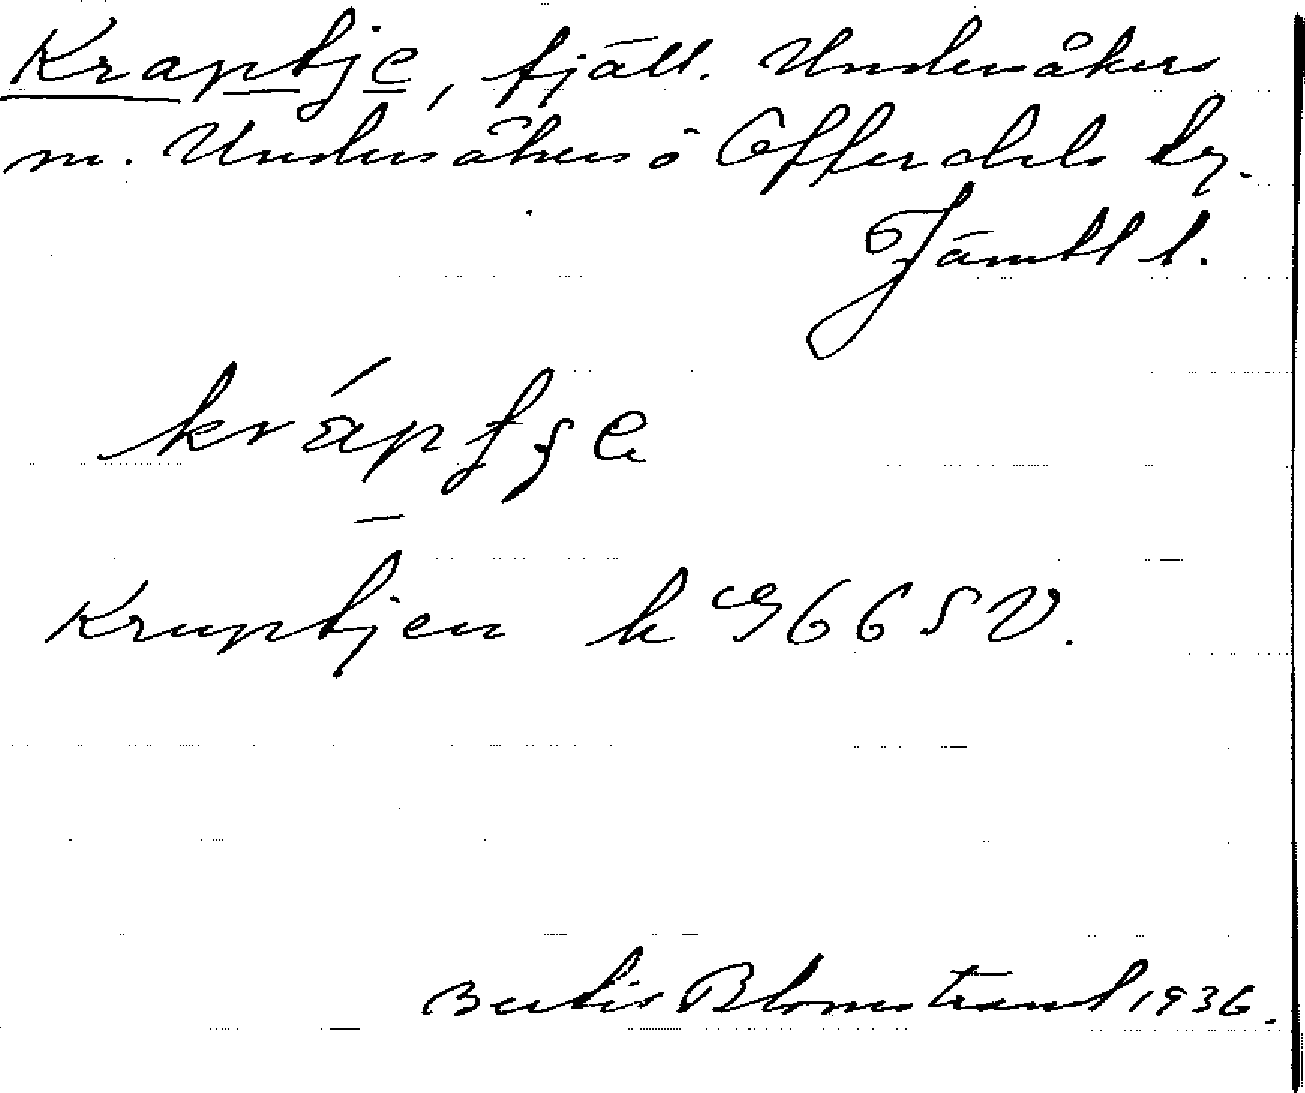 Kraptje, fjäll. Undersåkers
m. Undersåkers o Offerdals tg.
Jämtl l.
Kruptjen k G66SV.
Bertil Blomstrand 1936.